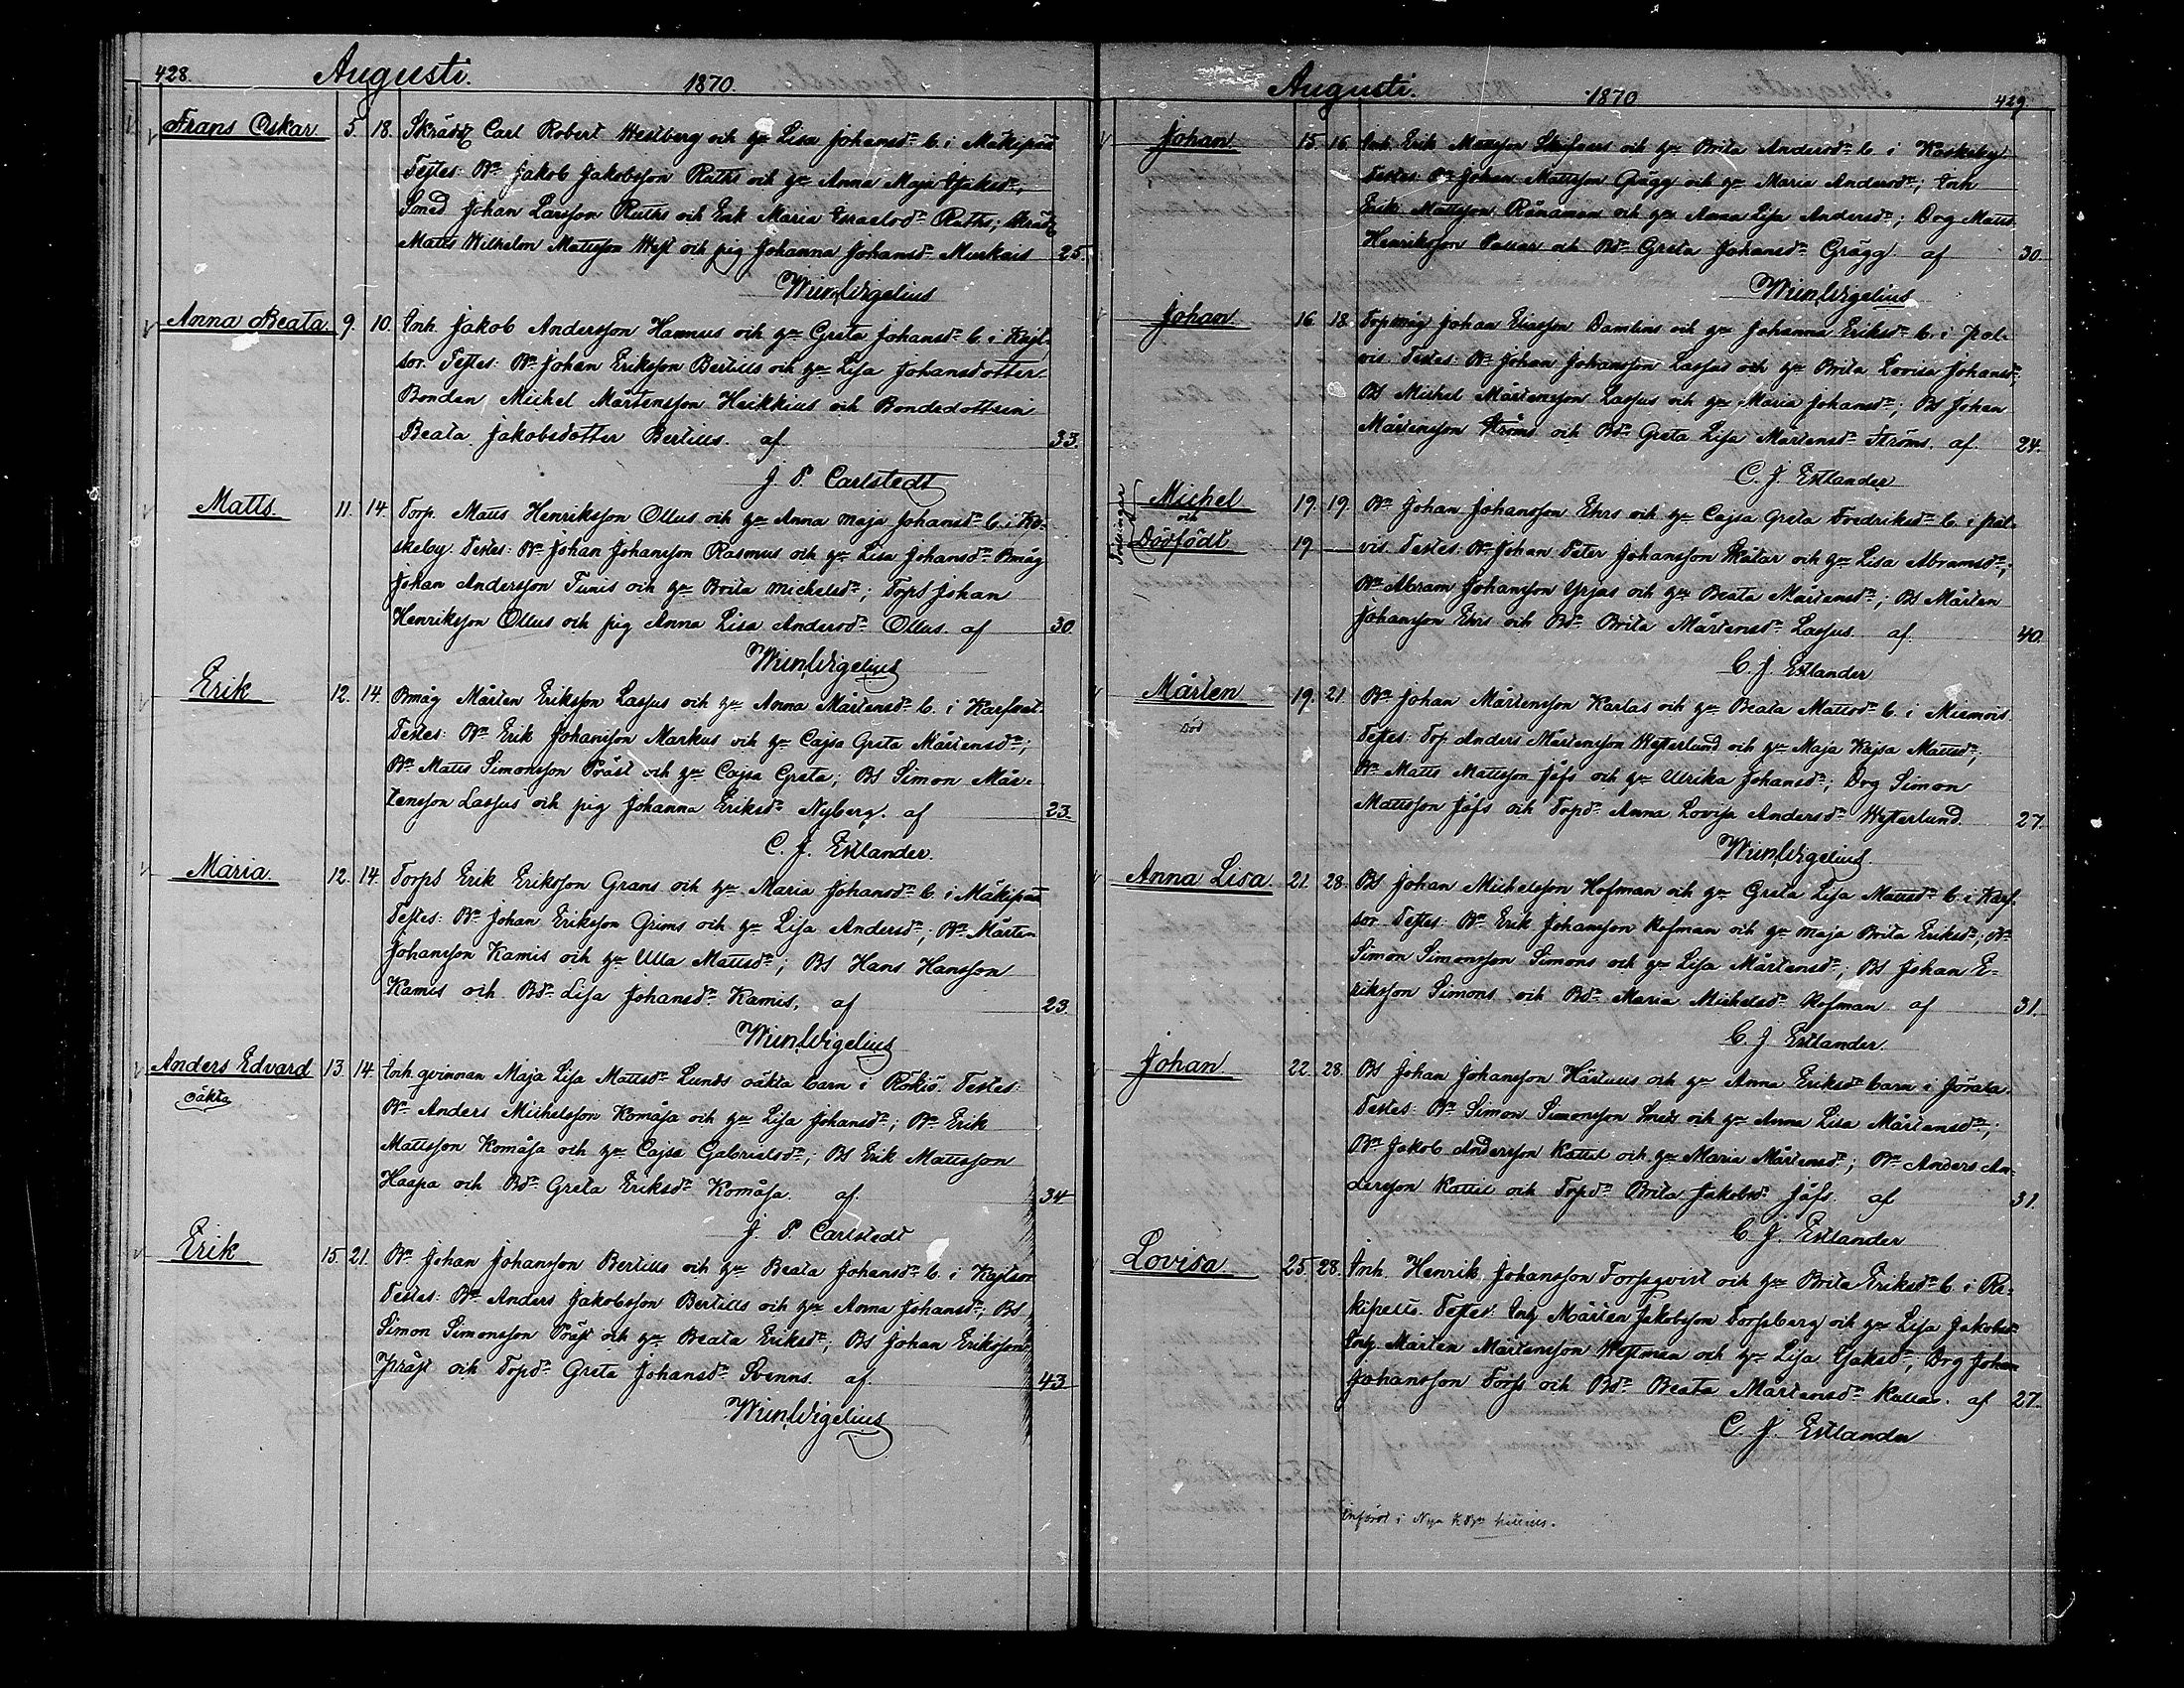 428. Augusti. 1870.
Frans Oskar. 5. 18. Skrädd Carl Robert Westberg och h:u Lisa Johansd:r b. i Mäkipää
Testes: B:n Jakob Jakobsson Ruths och h:u Anna Maja Isaksd:r,
Smed Johan Larsson Ruths och Enk Maria Israelsd:r Ruths; Skrädd
Matts Wilhelm Mattsson West och pig Johanna Johansd:r Murkais 25.
Wigelius
Anna Beata. 9. 10. Inh. Jakob Andersson Hannus och h:u Greta Johansd:r b. i Kajt-
sor. Testes: B:n Johan Eriksson Bertills och h:u Lisa Johansdotter.
Bonden Michel Mårtensson Heikkius och Bondedottren
Beata Jakobsdotter Bertills. af 33.
J. P. Carlstedt
Matts. 11. 14. Torp. Matts Henriksson Ollus och h:u Anna Maja Johansd:r b. i Ko-
skeby. Testes: B:n Johan Johansson Rasmus och h:u Lisa Johansd:r Bmåg
Johan Andersson Tunis och h:u Brita Michelsd:r; TorpS Johan
Henriksson Ollus och pig Anna Lisa Andersd:r Ollus. af 30.
Wigelius
Erik 12. 14. Bmåg Mårten Eriksson Lassus och h:u Anna Mårtensd:r b. i Karfsat.
Testes: B:n Erik Johansson Markus och h:u Cajsa Greta Mårtensd:r;
B:n Matts Simonsson Präst och h:u Cajsa Greta; BS Simon Mår-
tensson Lassus och pig Johanna Eriksd:r Nyberg. af 23.
C. J. Estlander.
Maria. 12. 14. TorpS Erik Eriksson Grans och h:u Maria Johansd:r b. i Mäkipää
Testes: B:n Johan Eriksson Grims och h:u Lisa Andersd:r; B:n Mårten
Johansson Kamis och h:u Ulla Mattsd:r; BS Hans Hansson
Kamis och Bd:r Lisa Johansd:r Kamis, af 23.
Wigelius
Anders Edvard 13. 14. Inh. qvinnan Maja Lisa Mattsd:r Lunds oäkta barn i Rökiö. Testes:
oäkta B:n Anders Michelsson Komåsa och h:u Lisa Johansd:r; B:n Erik
Mattsson Komåsa och h:u Cajsa Gabrielsd:r; BS Erik Mattsson
Haapa och Bd:r Greta Eriksd:r Komåsa. af. 34
J. P. Carlstedt
Erik 15. 21. B:n Johan Johansson Bertills och h:u Beata Johansd:r b. i Kajtsor
Testes: B:n Anders Jakobsson Bertills och h:u Anna Johansd:r; BS
Simon Simonsson Präst och h:u Beata Eriksd:r; BS Johan Eriksson
Präst och Torpd:r Greta Johansd:r Svenns. af. 43
Wigelius
Augusti. 1870 429
Johan. 15. 16. Inh. Erik Mattsson och h:u Brita Andersd:r b. i Koskeby.
Testes: B:n Johan Mattsson Grägg och h:u Maria Andersd:r; Inh
Erik Mattsson Rånaman och h:u Anna Lisa Andersd:r; Drg Matts
Henriksson och Bd:r Greta Johansd:r Grägg. af 30.
Wigelius
Johan. 16. 18. Torpmåg Johan Eliasson Damlins och h:u Johanna Eriksd:r b. i Pal-
vis. Testes: B:n Johan Johansson Lassus och h:u Brita Lovisa Johansd:r;
BS Michel Mårtensson Lassus och h:u Maria Johansd:r; BS Johan
Mårtensson Ströms och Bd:r Greta Lisa Mårtensd:r Ströms. af. 24.
C. J. Estlander
Tvillingar Michel 19. 19. B:n Johan Johansson Ehrs och h:u Cajsa Greta Fredriksd:r b. i Pal-
och
Dödfödt 19 — vis. Testes: B:n Johan Peter Johansson Skatar och h:u Lisa Abramsd:r;
B:n Abram Johansson Yrjas och h:u Beata Mårtensd:r; BS Mårten
Johansson Ehrs och Bd:r Brita Mårtensd:r Lassus. af. 40.
C. J. Estlander
Mårten 19. 21. B:n Johan Mårtensson Karlas och h:u Beata Mattsd:r b. i Miemois
Död Testes: Torp Anders Mårtensson Westerlund och h:u Maja Kajsa Mattsd:r;
B:n Matts Mattsson Jåfs och h:u Ulrika Johansd:r; Drg Simon
Mattsson Jåfs och Torpd:r Anna Lovisa Andersd:r Westerlund. 27.
Wigelius.
Anna Lisa. 21. 28. BS Johan Michelsson Hofman och h:u Greta Lisa Mattsd:r b. i Karf-
sor. Testes: B:n Erik Johansson Hofman och h:u Maja Brita Eriksd:r; B:n
Simon Simonsson Simons och h:u Lisa Mårtensd:r; BS Johan E-
riksson Simons och Bd:r Maria Michelsd:r Hofman af 31.
C. J. Estlander.
Johan 22. 28. BS Johan Johansson Härtuus och h:u Anna Eriksd:r barn i Jörala.
Testes: B:n Simon Simonsson Smeds och h:u Anna Lisa Mårtensd:r;
B:n Jakob Andersson Kattil och h:u Maria Mårtensd:r; B:n Anders An-
dersson Kattil och Torpd:r Brita Jakobsd:r Jåfs. af 31.
C. J. Estlander
Lovisa 25. 28. Inh. Henrik Johansson Forsqvist och h:u Brita Eriksd:r b. i Re-
kipelto. Testes: Inh Mårten Jakobsson Forssberg och h:u Lisa Jakobsd:r
Inh. Mårten Mårtensson Westman och h:u Lisa Isaksd:r; Drg Johan
Johansson Forss och Bd:r Beata Mårtensd:r Kallas. af 27.
C. J. Estlander
Införd i Nya KB:n